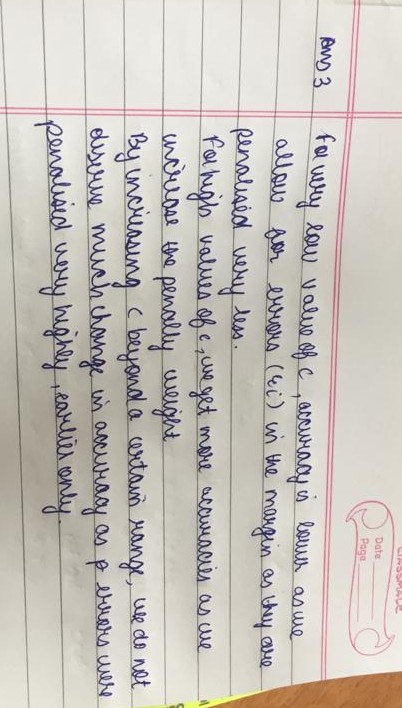 CLASSMATE
Date
Page
Ans 3
For very low value of c, accuracy is lower as we
allow for errors (ξi) in the margin as they are
penalised very less.
For high values of c, we get more accuracies as we
increase the penalty weight
By increasing C beyond a certain range, we do not
observe much change in accuracy as errors were
penalised very highly, earlier only.